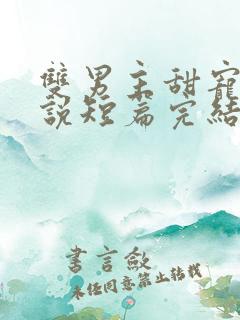 雙男主甜寵
說短篇完結
書言歛
未經同意禁止轉載